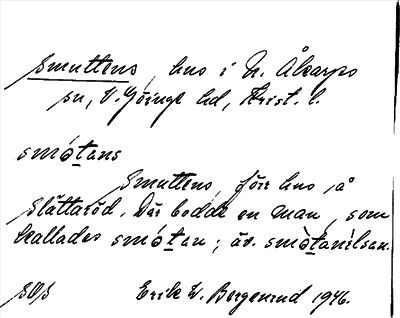 Smuttens, hus i N. Åkarps
sn, V. Göinge hd, Krist. l.
smótans
Smuttens, förr hus på
Slättaröd. Där bodde en man, som
kallades smótan; äv. smòtanilsan.
SOS Erik W. Bergenrud 1946.